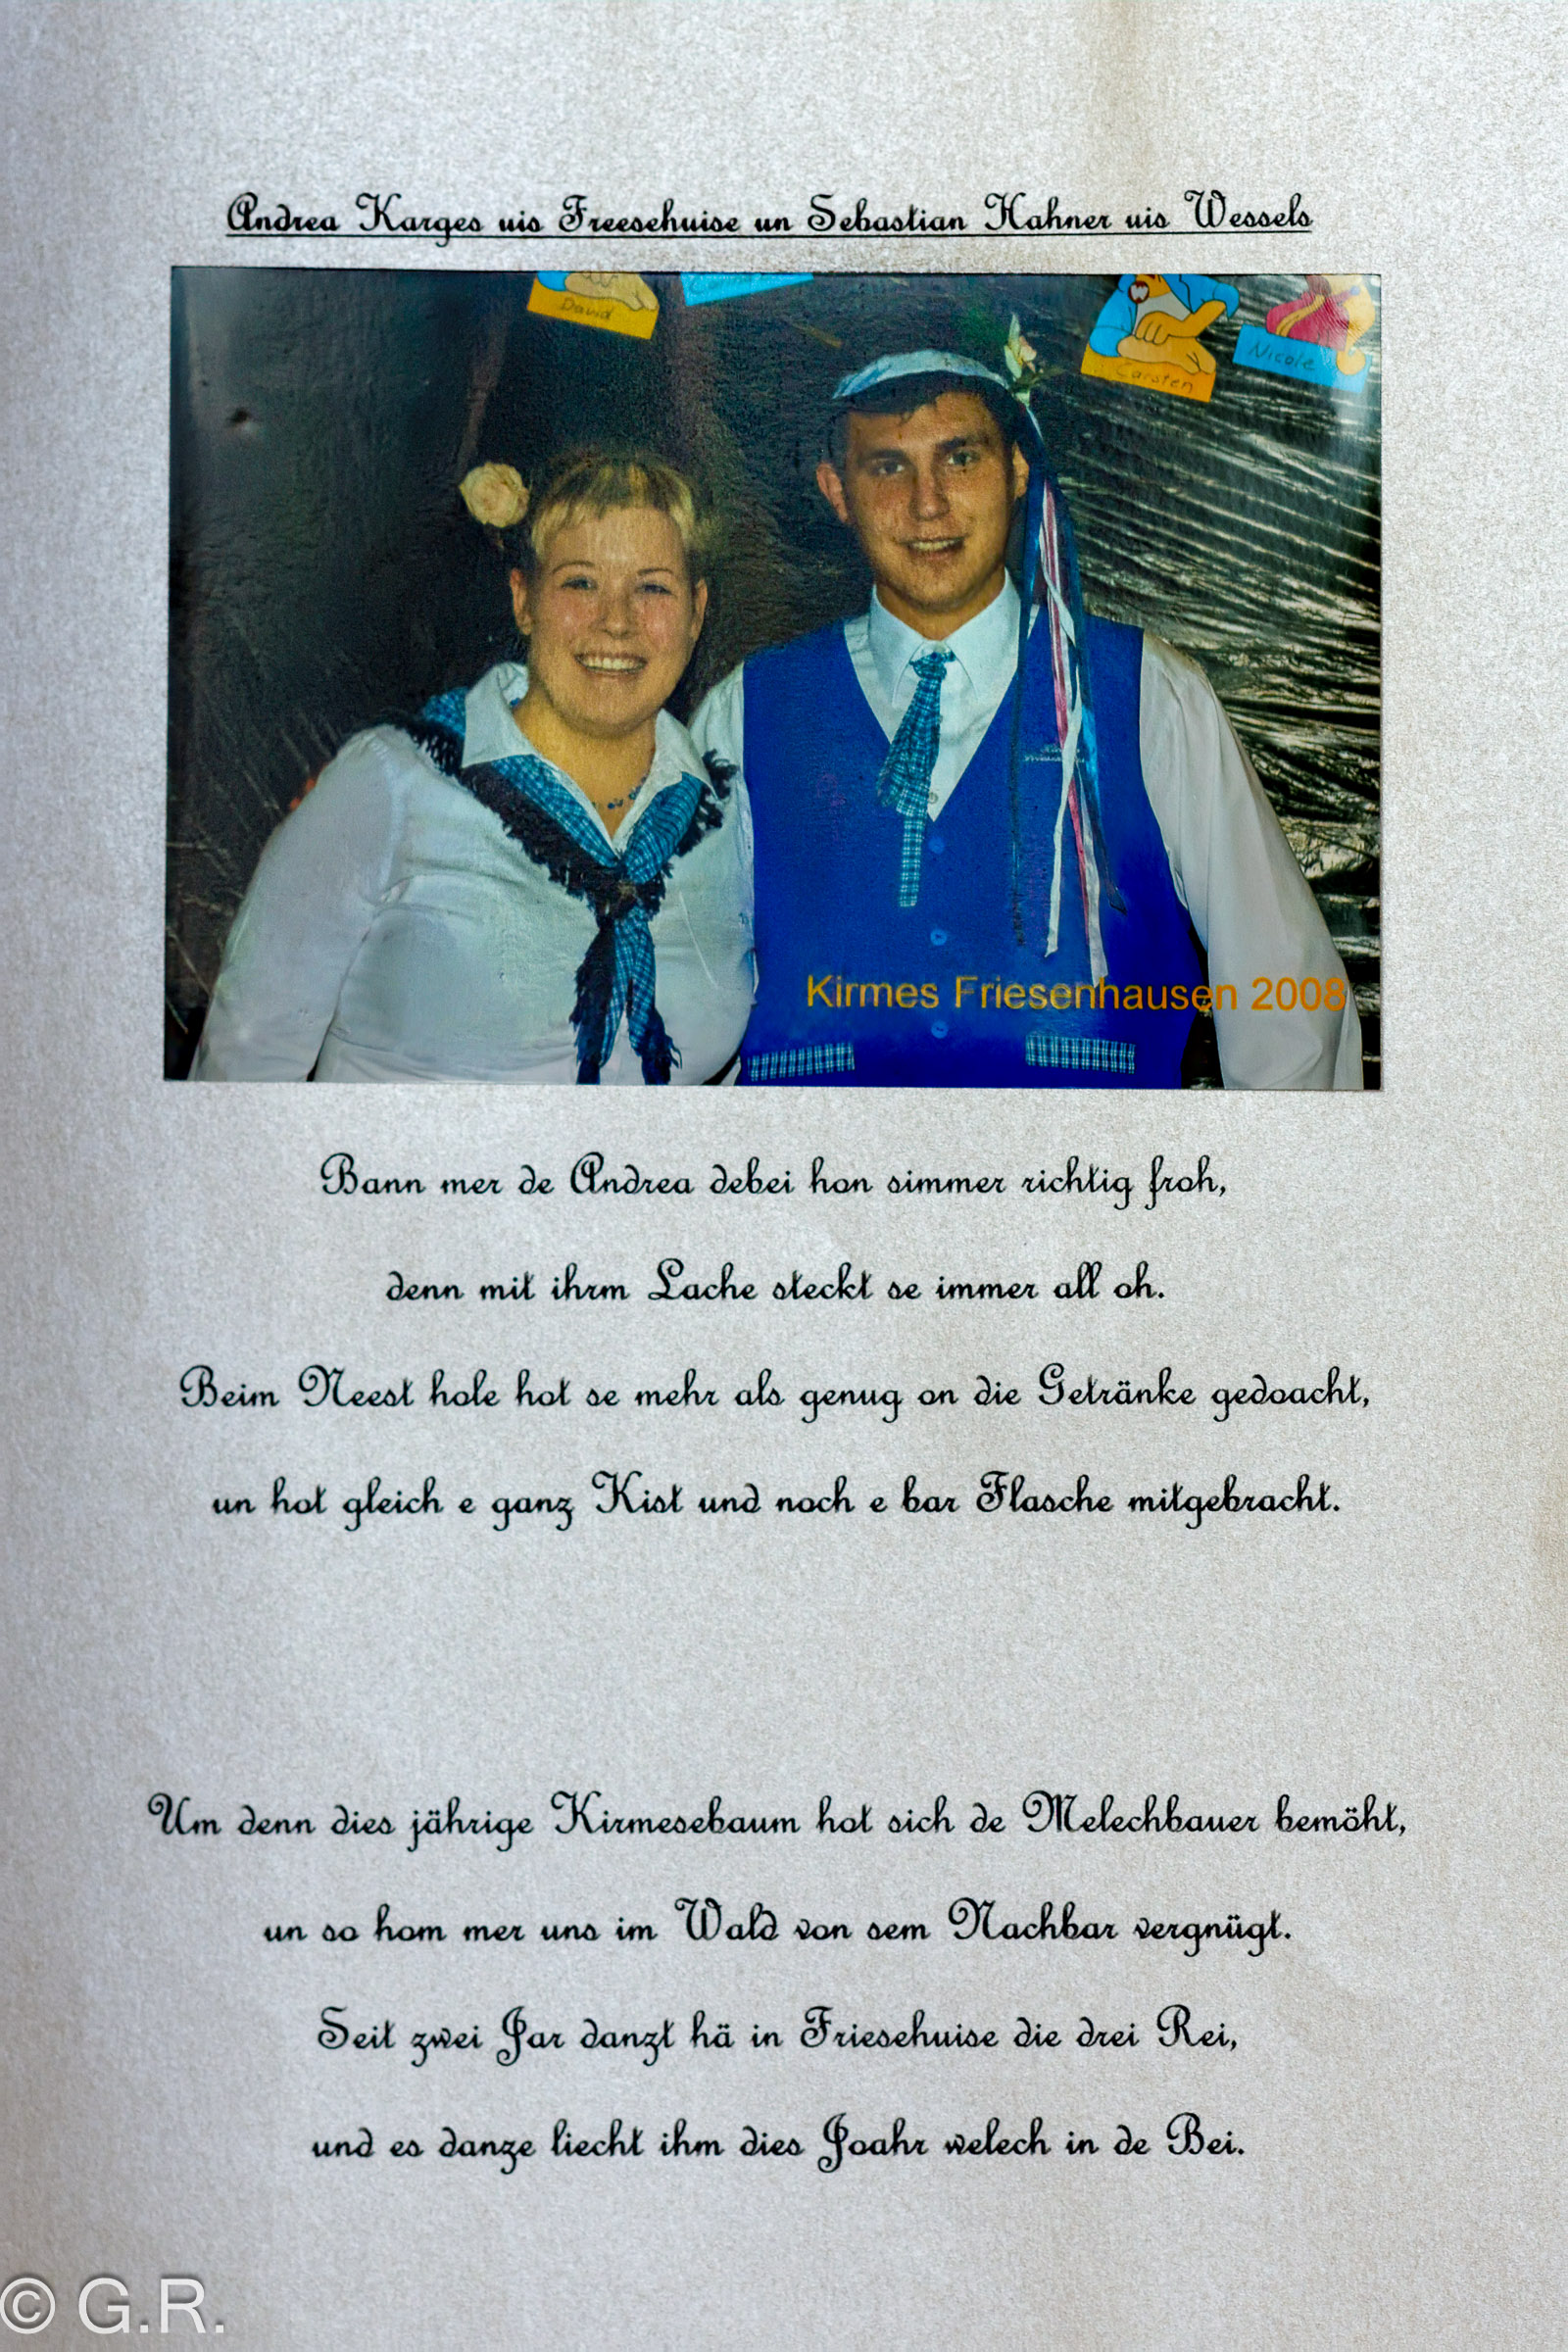 Andrea Karges uis Freesehuise un Sebastian Hahner uis Wessels
David
Carsten
Nicole
Kirmes Friesenhausen 2008
Bann mer de Andrea debei hon simmer richtig froh,
denn mit ihrm Lache steckt se immer all oh.
Beim Neest hole hot se mehr als genug on die Getränke gedoacht,
un hot gleich e ganz Kist und noch e bar Flasche mitgebracht.
Um denn dies jährige Kirmesebaum hot sich de Melechbauer bemöht,
un so hom mer uns im Wald von sem Nachbar vergnügt.
Seit zwei Jar danzt hä in Friesehuise die drei Rei,
und es danze liecht ihm dies Joahr welech in de Bei.
© G.R.